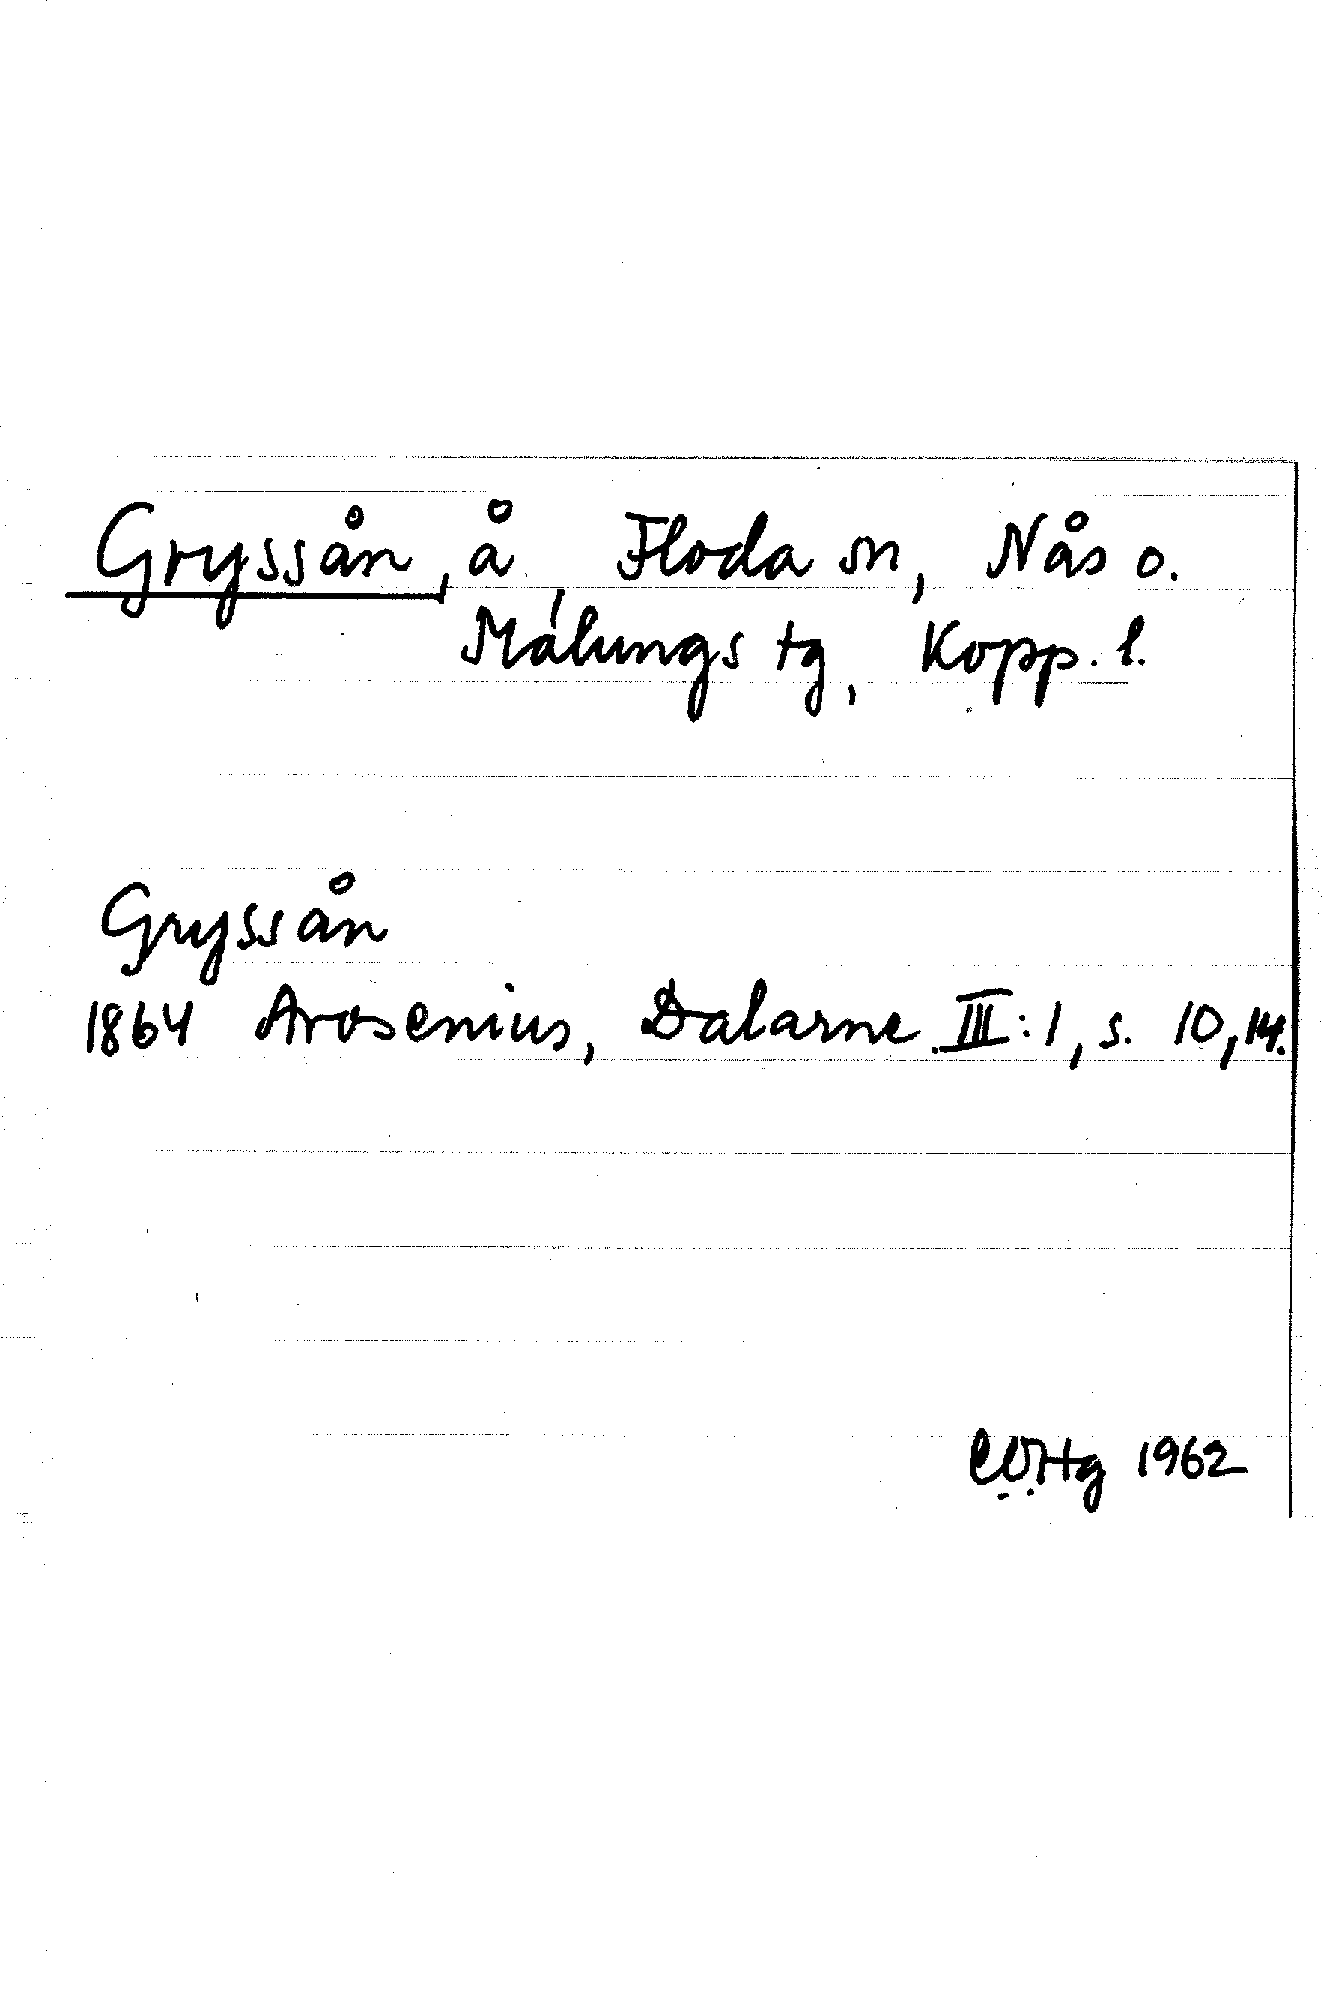 Gryssån, å, Floda sn, Nås o.
Malungs tg, Kopp. l.
Gryssån
1864 Arosenius, Dalarne III:1, s. 10, 14.
COHg 1962